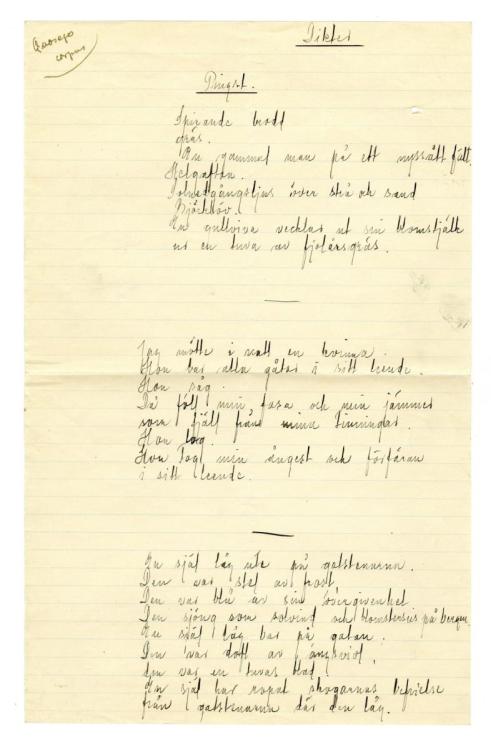 Dikter
Pingst.
Spirande brodd
gräs.
En gammal man på ett nyssått fält.
Helgafton.
Solnedgångsljus över strå och sand
Björklöv.
En gullviva vecklar ut sin blomstjälk
ur en tuva av fjolårsgräs.
Jag mötte i natt en kvinna.
Hon bar alla gåtor i sitt leende.
Hon såg.
Då föll min fasa och min jämmer
som fjäll från mina tinningar.
Hon log.
Hon tog min ångest och förfäran
i sitt leende.
En själ låg ute på gatstenarna.
Den var stel av frost.
Den var blå av sin övergivenhet.
Den sjöng som solvind och blomstersus på bergen
En själ låg bar på gatan.
Den var doft av ängsviol,
den var en tuvas blad.
En själ har ropat skogarnas befrielse
från gatstenarna där den låg.